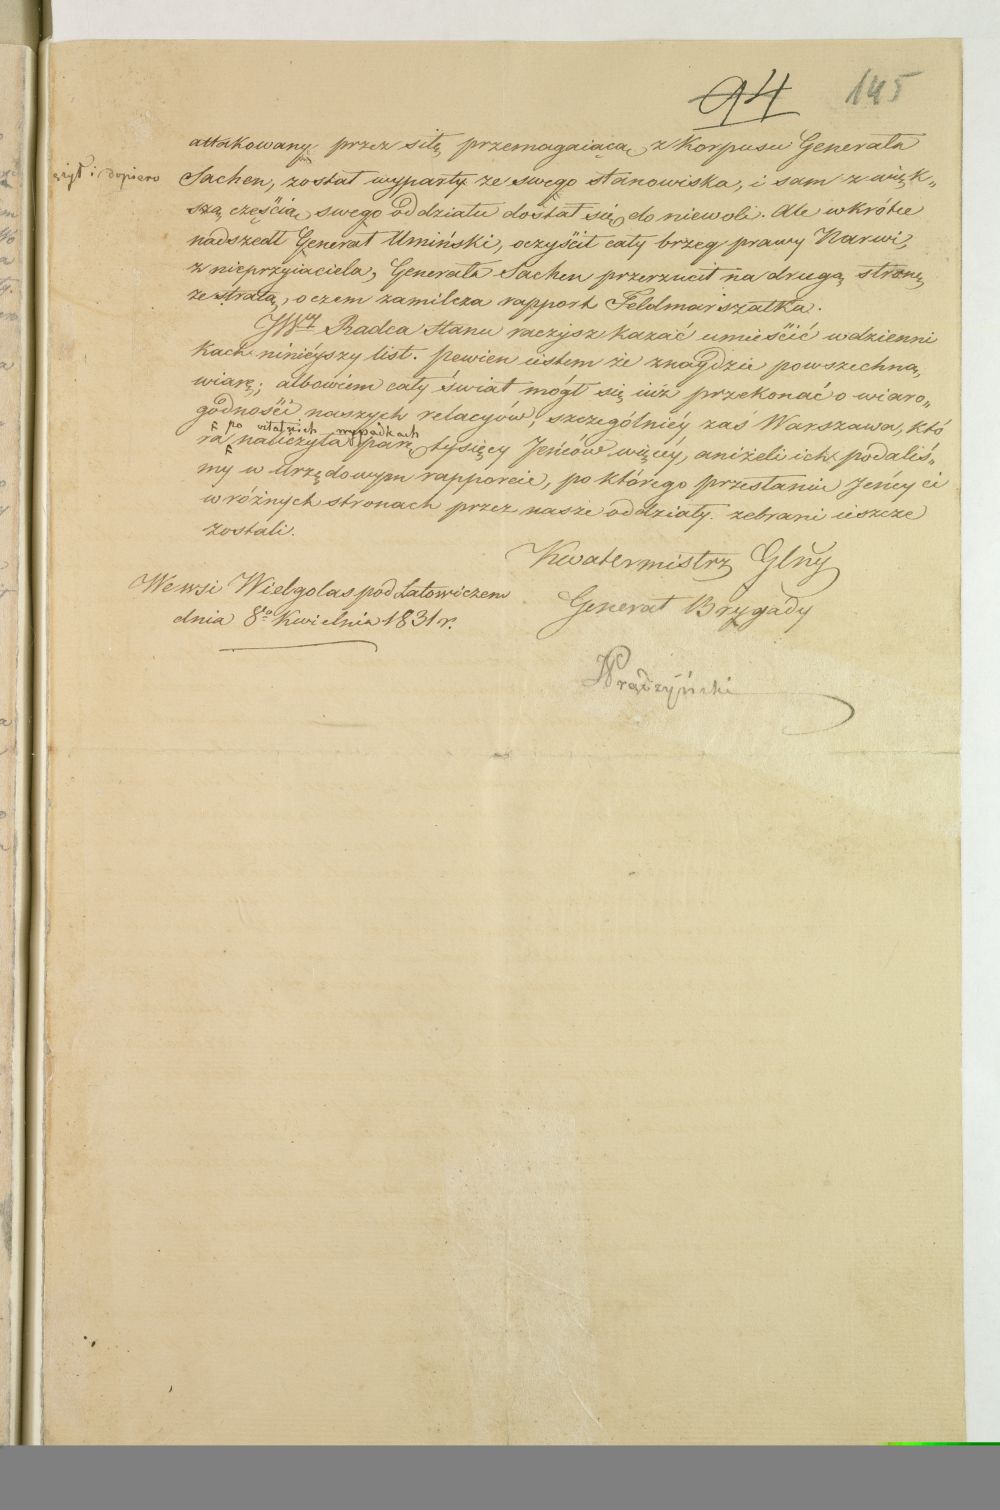 94 145
attakowany przez siłę przemagaiącą z Korpusu Generała
i dopiero
Sachen, został wyparty ze swego stanowiska, i sam z więk„
szą częścią swego oddziału dostał się do niewoli. Ale wkrótce
nadszedł Generał Umiński, oczyścił cały brzeg prawy Narwi,
z nieprzyiaciela, Generała Sachen przerzucił na drugą stronę
ze stratą, o czem zamilcza rapport Feldmarszałka.
JWny Radca Stanu raczysz kazać umieścić w dzienni
kach ninieyszy list. Pewien iestem że znaydzie powszechną
wiarę; albowiem cały świat mógł się iuż przekonać o wiaro„
godności naszych relacyów, szczególniéy zaś Warszawa, któ
po wypadkach
ra naliczyła parę tysięcy Jeńców więcéy, aniżeli ich podaliś„
my w urzędowym rapporcie, po którego przesłaniu Jeńcy ci
w różnych stronach przez nasze oddziały zebrani ieszcze
zostali.
Kwatermistrz Glny
We wsi Wielgolas pod Latowiczem
Generał Brygady
dnia 8go Kwietnia 1831 r.
Prądzyński